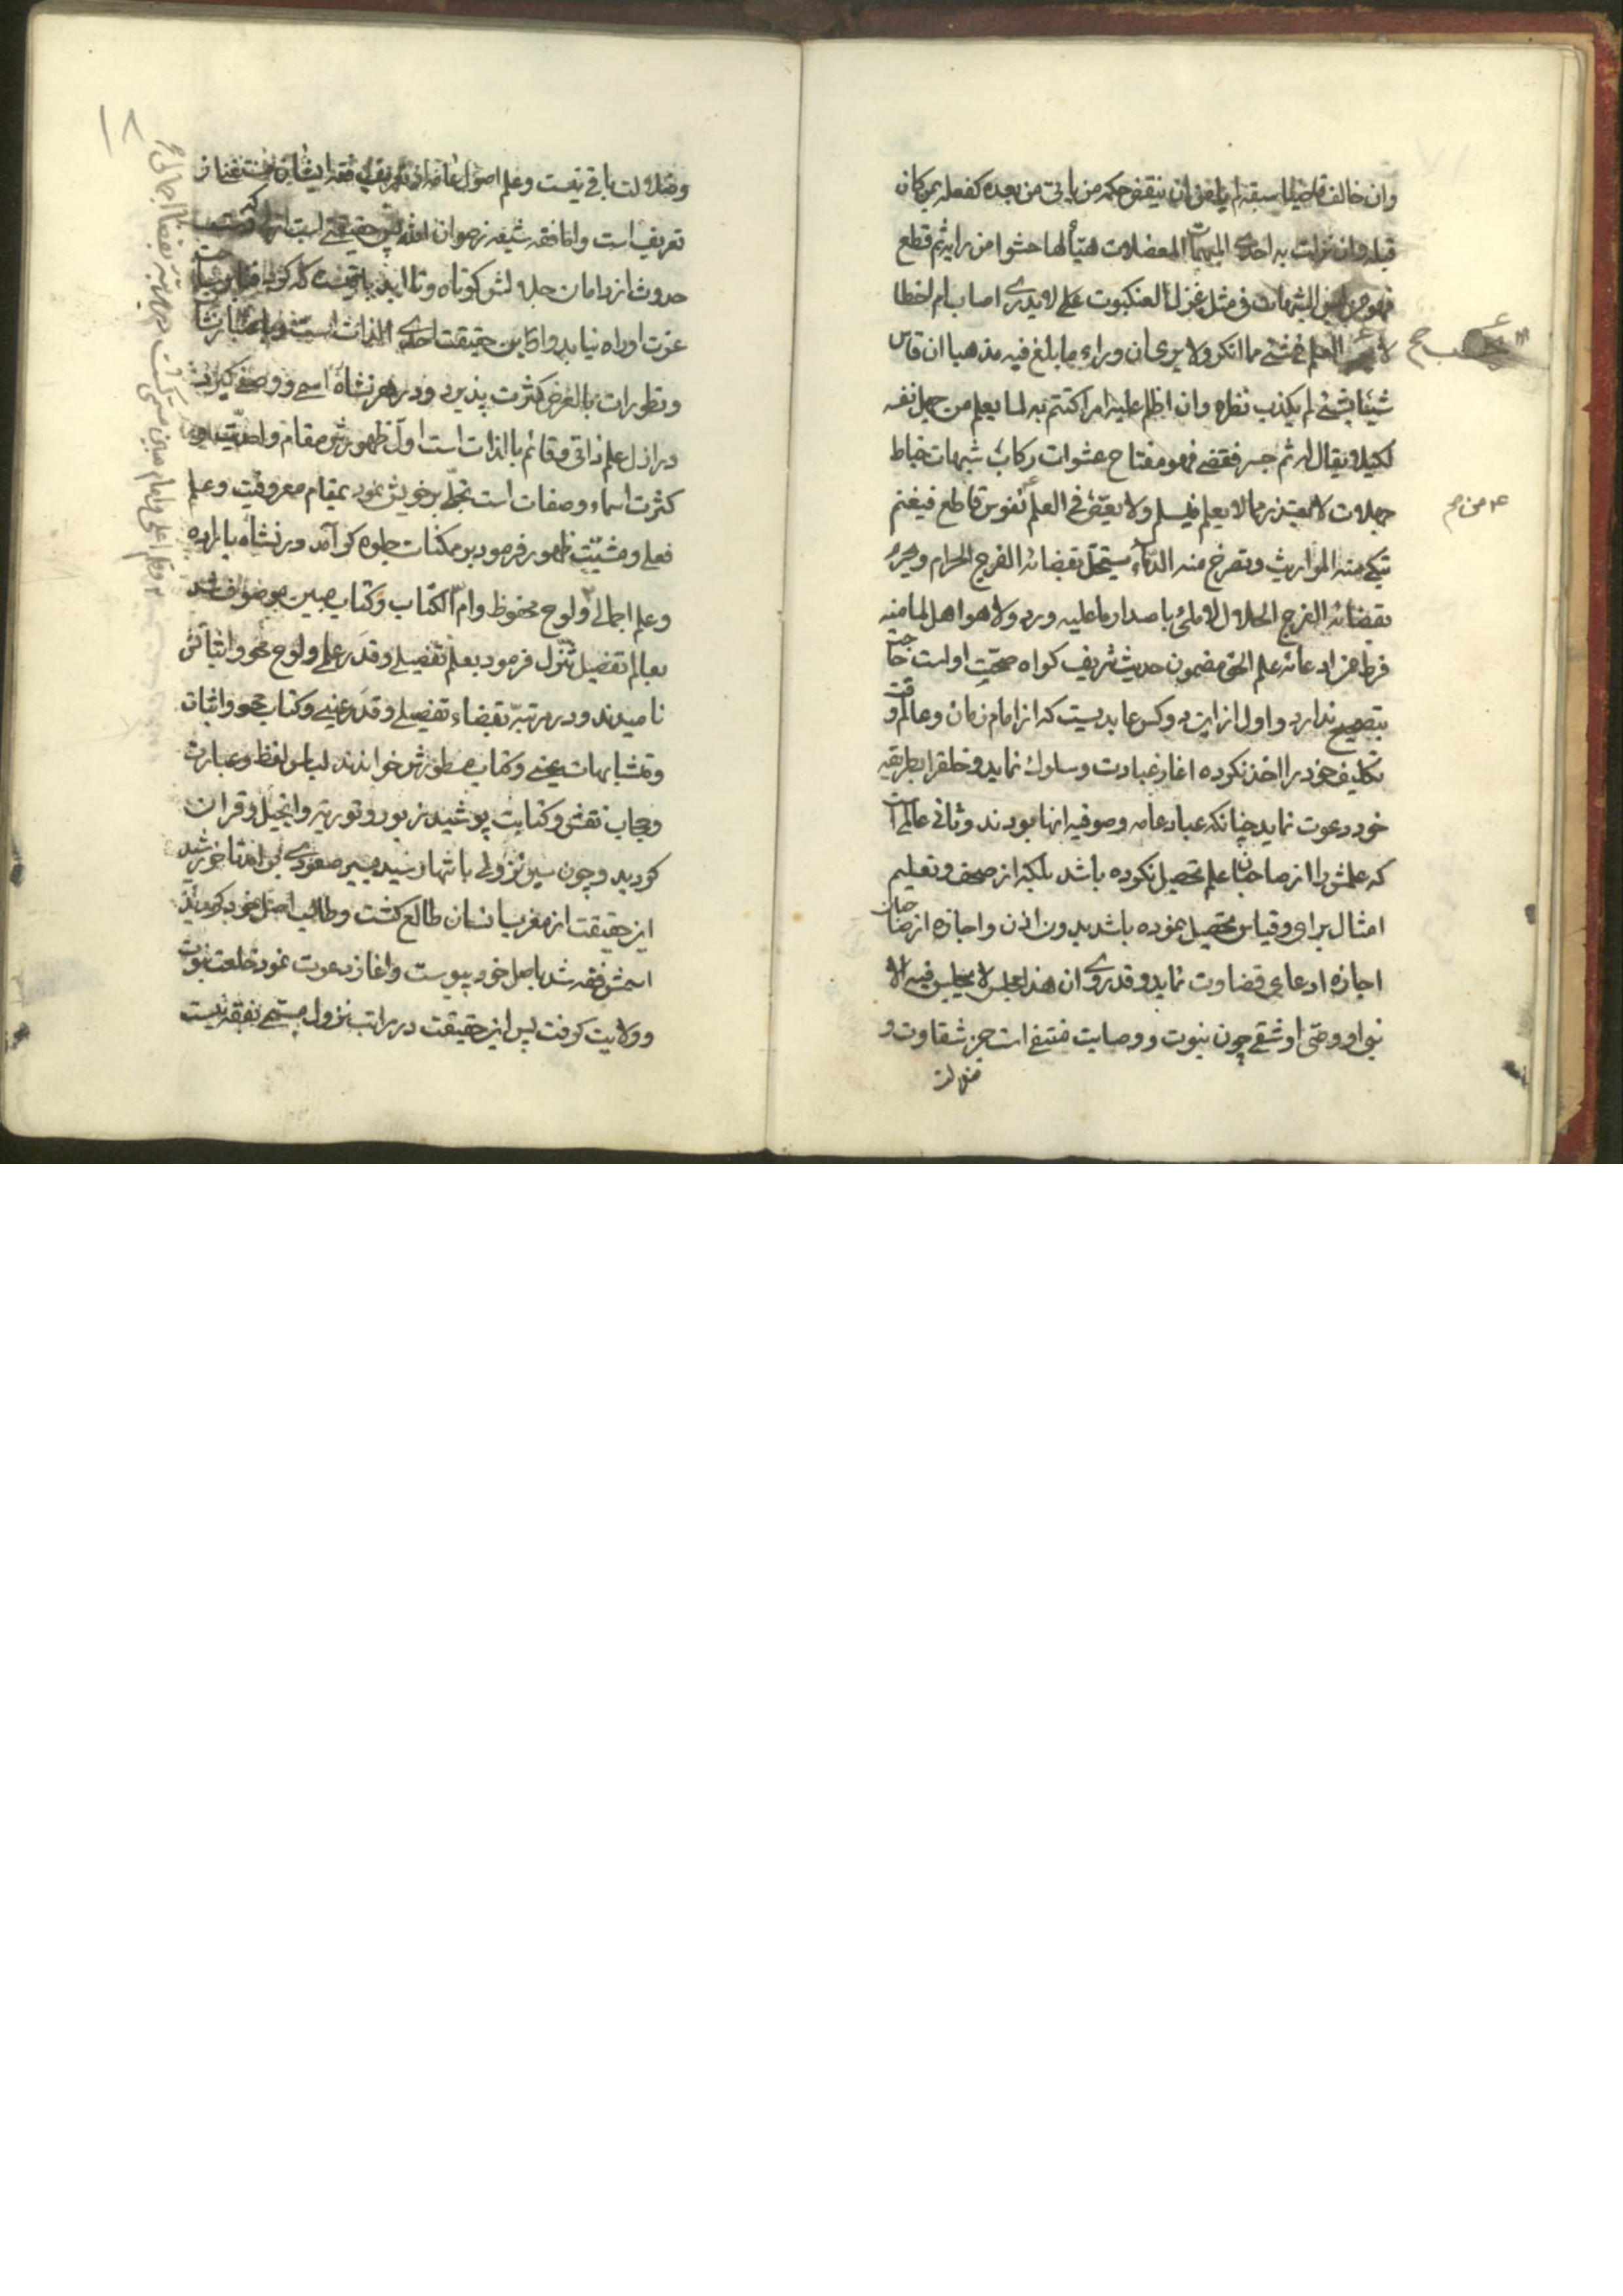 وان خالف قاضيا سبقه لم يامن ان ينقض حكمه من ياتى من بعده كفعله بمن كان
قبله وان نزلت به احدى المبهمات المعضلات هيّألها حشوا من رايه ثم قطع
فهو من لبس الشبهات فى مثل غزل العنكبوت على لا يدرى اصاب ام اخطا
لا يحسب العلم فى شئ مما انكر ولا يرى ان وراء ما بلغ فيه مذهبا ان قاس
شيئا بشئ لم يكذب نظره وان اظلم عليه امر اكتتم به لما يعلم من جهل نفسه
لكيلا يقال له ثم جسر فقضى فهو مفتاح عشوات ركاب شبهات خباط
جهلات لا يعتذر مما لا يعلم فيسلم ولا يعضّ فى العلم بضرس قاطع فيغنم
تبكى منه المواريث وتصرخ منه الدّماء يستحلّ بقضائه الفرج الحرام ويحرم
بقضائه الفرج الحلال لا ملئ باصدار ما عليه ورد ولا هو اهل لما منه
فرط من ادعائه علم الحق مضمون حديث شريف كواه صحّت اوست حاجت
بتصحيح ندارد و اول از اين دو كس عابديست كه از امام زمان و عالم وقت
تكليف خود را اخذ نكرده اغاز عبادت و سلوك نمايد و خلق را بطريقه
خود دعوت نمايد چنانكه عباد عامه و صوفيه انها بودند و ثانى عالم است
كه علمش را از صاحبان علم تحصيل نكرده باشد بلكه از صحف و تعليم
امثال براى و قياس تحصيل نموده باشد بدون اذن و اجازه از صاحبان
اجازه ادعاى قضاوت نمايد و قد روى ان هذا مجلس لا يجلس فيه الا
نبى او وصى او شقى چون نبوت و وصايت منتفى است جز شقاوت و
ضلالت
يحسب ح
من م
١٨
و ضلالت باقى نيست و علم اصول عامه از تعريف فقه ايشان مستغنى از
تعريف است و اما فقه شيعه رضوان الله پس حقيقتى است
حدوث از دامان جلالش كوتاه و تا ابد
عزت او راه نيابد و اگر اين حقيقت احدى الذات است و باعتبار نشات
و تطورات بالعرض كثرت پذيرد و در هر نشاه اسمى و وصفى گيرد
در ازل علم ذاتى و قائم بالذات است اول ظهورش مقام واحديّت و
كثرت اسماء و صفات است تجلّى بر خويش نمود بمقام معروفيّت و علم
فعلى و مشيّت ظهور فرمود بر مكنات جلوه گر آمد در نشاه باراده
و علم اجمالى و لوح محفوظ و امّ الكتاب و كتاب مبين موصوف شد
بعالم تفصيل تنزّل فرمود بعلم تفصيلى و قدر علمى و لوح محو و اثباتش
ناميدند و در مرتبه بقضاء تفصيلى و قدر عينى و كتاب محو و اثبات
و متشابهات عينى و كتاب مسطورش خواندند لباس لفظ و عبارت
و حجاب نقش و كتابت پوشيد زبور و تورية و انجيل و قران
كرديد و چون سير نزولى بانتها رسيد بسير صعودى بر آمد تا خورشيد
اين حقيقت از مغرب انسان طالع كشت و طالب اصل خود كرديد
اسمش فقه شد باصل خود پيوست و اغاز دعوت نمود خلعت نبوت
و ولايت گرفت پس اين حقيقت در مراتب نزول مسمّى بفقه نيست